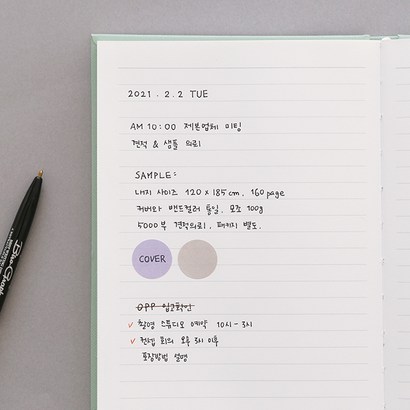 2021. 2. 2 TUE
AM 10:00 제본업체 미팅
견적 & 샘플 의뢰
SAMPLE:
내지 사이즈 120 x 185cm, 160page
커버와 밴드컬러 통일, 모조 100g
5000부 견적의뢰, 패키지 별도.
COVER
OPP 입고확인
✓ 촬영 스튜디오 예약 10시-3시
✓ 컨셉 회의 오후 3시 이후
포장방법 설명